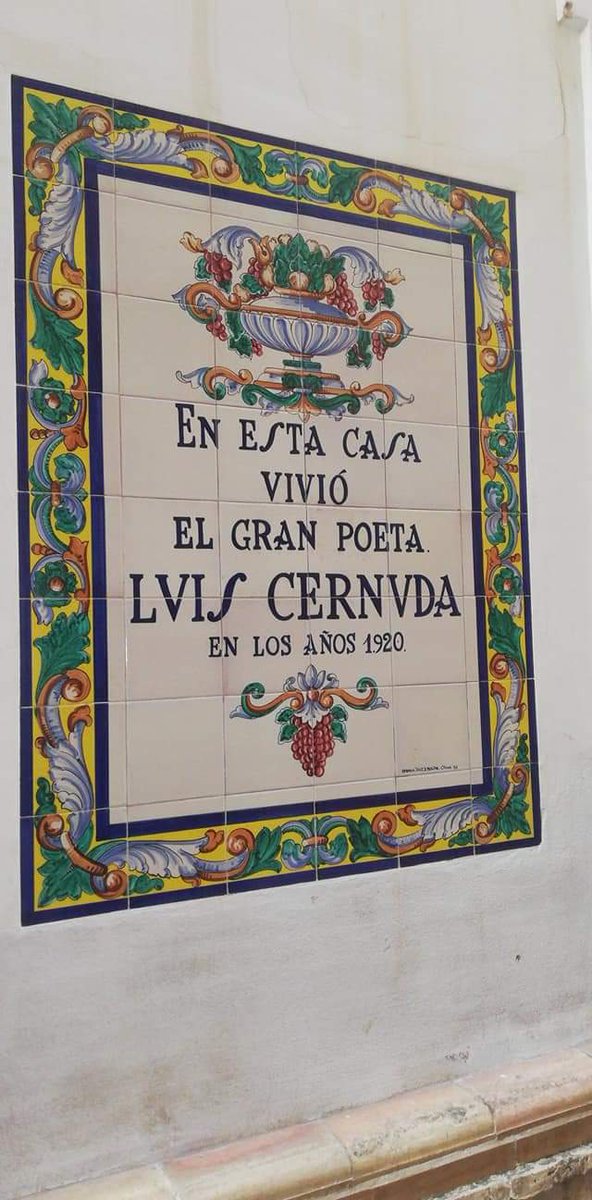 EN ESTA CASA
VIVIÓ
EL GRAN POETA.
LVIS CERNVDA
EN LOS AÑOS 1920.